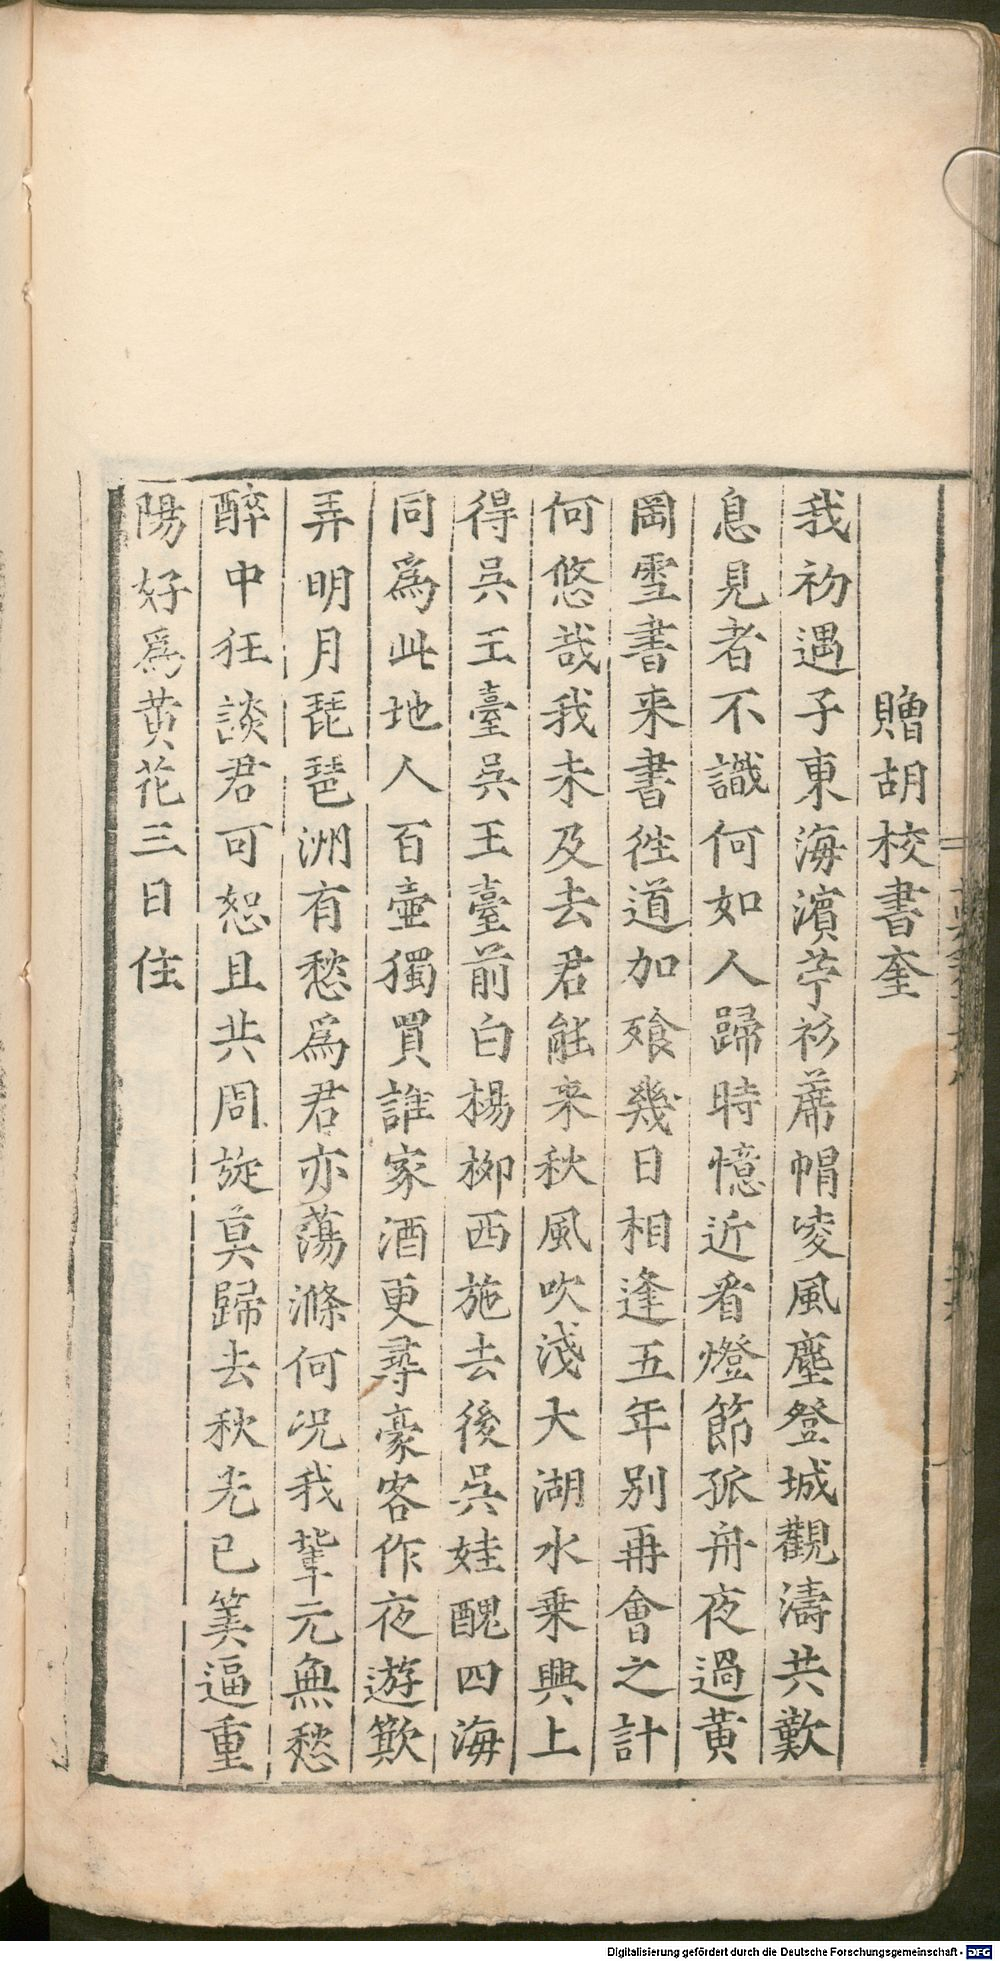 贈胡校書奎
我初遇子東海濱苧衫蓆帽凌風塵登城觀濤共歎
息見者不識何如人歸時憶近看燈節孤舟夜過黃
岡雪書来書徃道加飧幾日相逢五年別再會之計
何悠哉我未及去君能来秋風吹淺大湖水乗興上
得吳王臺吳王臺前白楊柳西施去後吳娃醜四海
同爲此地人百壷獨買誰家酒更尋豪客作夜遊欺
弄明月琵琶洲有愁爲君亦蕩滌何况我輩元無愁
醉中狂談君可恕且共周旋莫歸去秋光已筭逼重
陽好爲黄花三日住
Digitalisierung gefördert durch die Deutsche Forschungsgemeinschaft - DFG